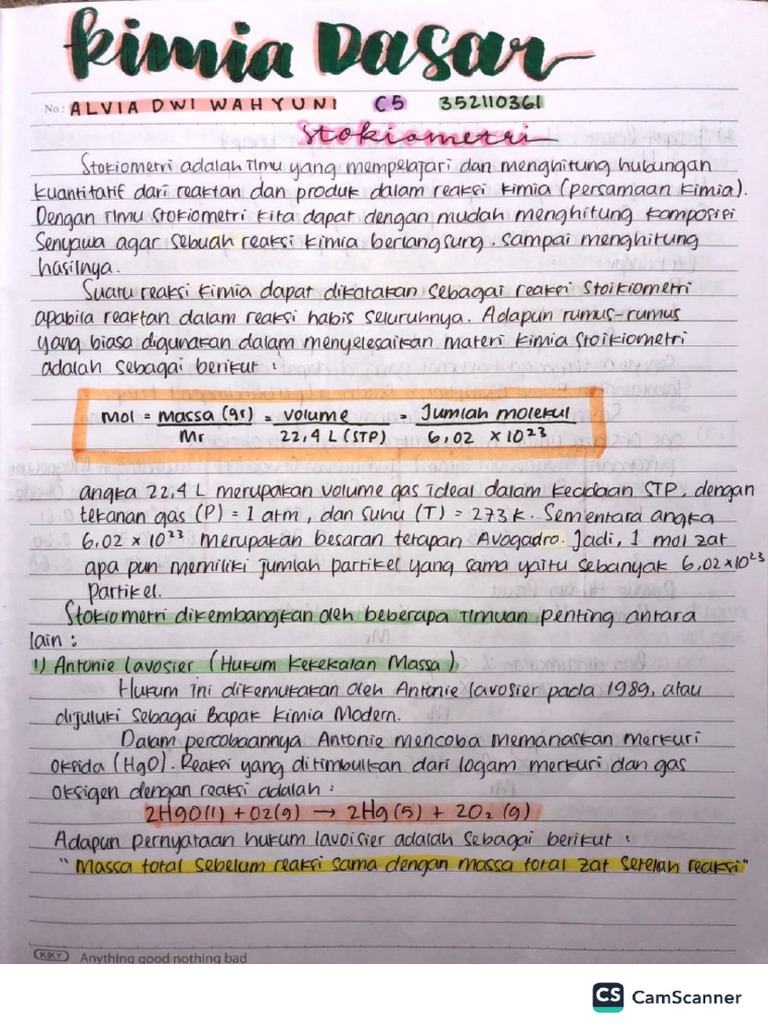 Kimia Dasar
No.: ALVIA DWI WAHYUNI C5 352110361
Stokiometri
Stokiometri adalah ilmu yang mempelajari dan menghitung hubungan
kuantitatif dari reaktan dan produk dalam reaksi kimia (persamaan kimia).
Dengan ilmu stokiometri kita dapat dengan mudah menghitung komposisi
senyawa agar sebuah reaksi kimia berlangsung, sampai menghitung
hasilnya.
Suatu reaksi kimia dapat dikatakan sebagai reaksi stoikiometri
apabila reaktan dalam reaksi habis seluruhnya. Adapun rumus-rumus
yang biasa digunakan dalam menyelesaikan materi kimia stoikiometri
adalah sebagai berikut :
Mol = Massa (gr) / Mr = Volume / 22,4 L (STP) = Jumlah molekul / 6,02 × 10²³
angka 22,4 L merupakan volume gas ideal dalam keadaan STP, dengan
tekanan gas (P) = 1 atm, dan suhu (T) = 273 K. Sementara angka
6,02 × 10²³ merupakan besaran tetapan Avogadro. Jadi, 1 mol zat
apa pun memiliki jumlah partikel yang sama yaitu sebanyak 6,02 × 10²³
Partikel.
Stokiometri dikembangkan oleh beberapa ilmuan penting antara
lain :
1) Antonie Lavosier (Hukum Kekekalan Massa)
Hukum ini dikemukakan oleh Antonie Lavosier pada 1989, atau
dijuluki sebagai Bapak Kimia Modern.
Dalam percobaannya Antonie mencoba memanaskan merkuri
oksida (HgO). Reaksi yang ditimbulkan dari logam merkuri dan gas
oksigen dengan reaksi adalah :
2HgO(l) + O2(g) → 2Hg (s) + 2O₂ (g)
Adapun pernyataan hukum lavoisier adalah sebagai berikut :
"Massa total sebelum reaksi sama dengan massa total zat setelah reaksi"
KKY Anything good nothing bad
CS CamScanner